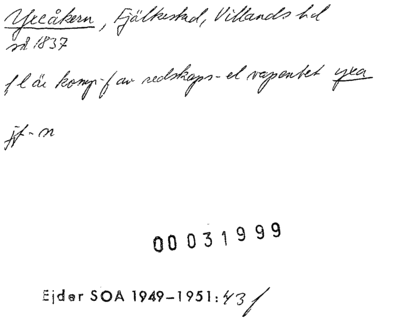 Yxeåkern, Fjälkestad, Villands hd
sk 1837
f l är komp-f av redskaps- el vapenbet yxa
jf-n
00031999
Ejder SOA 1949-1951:43 f